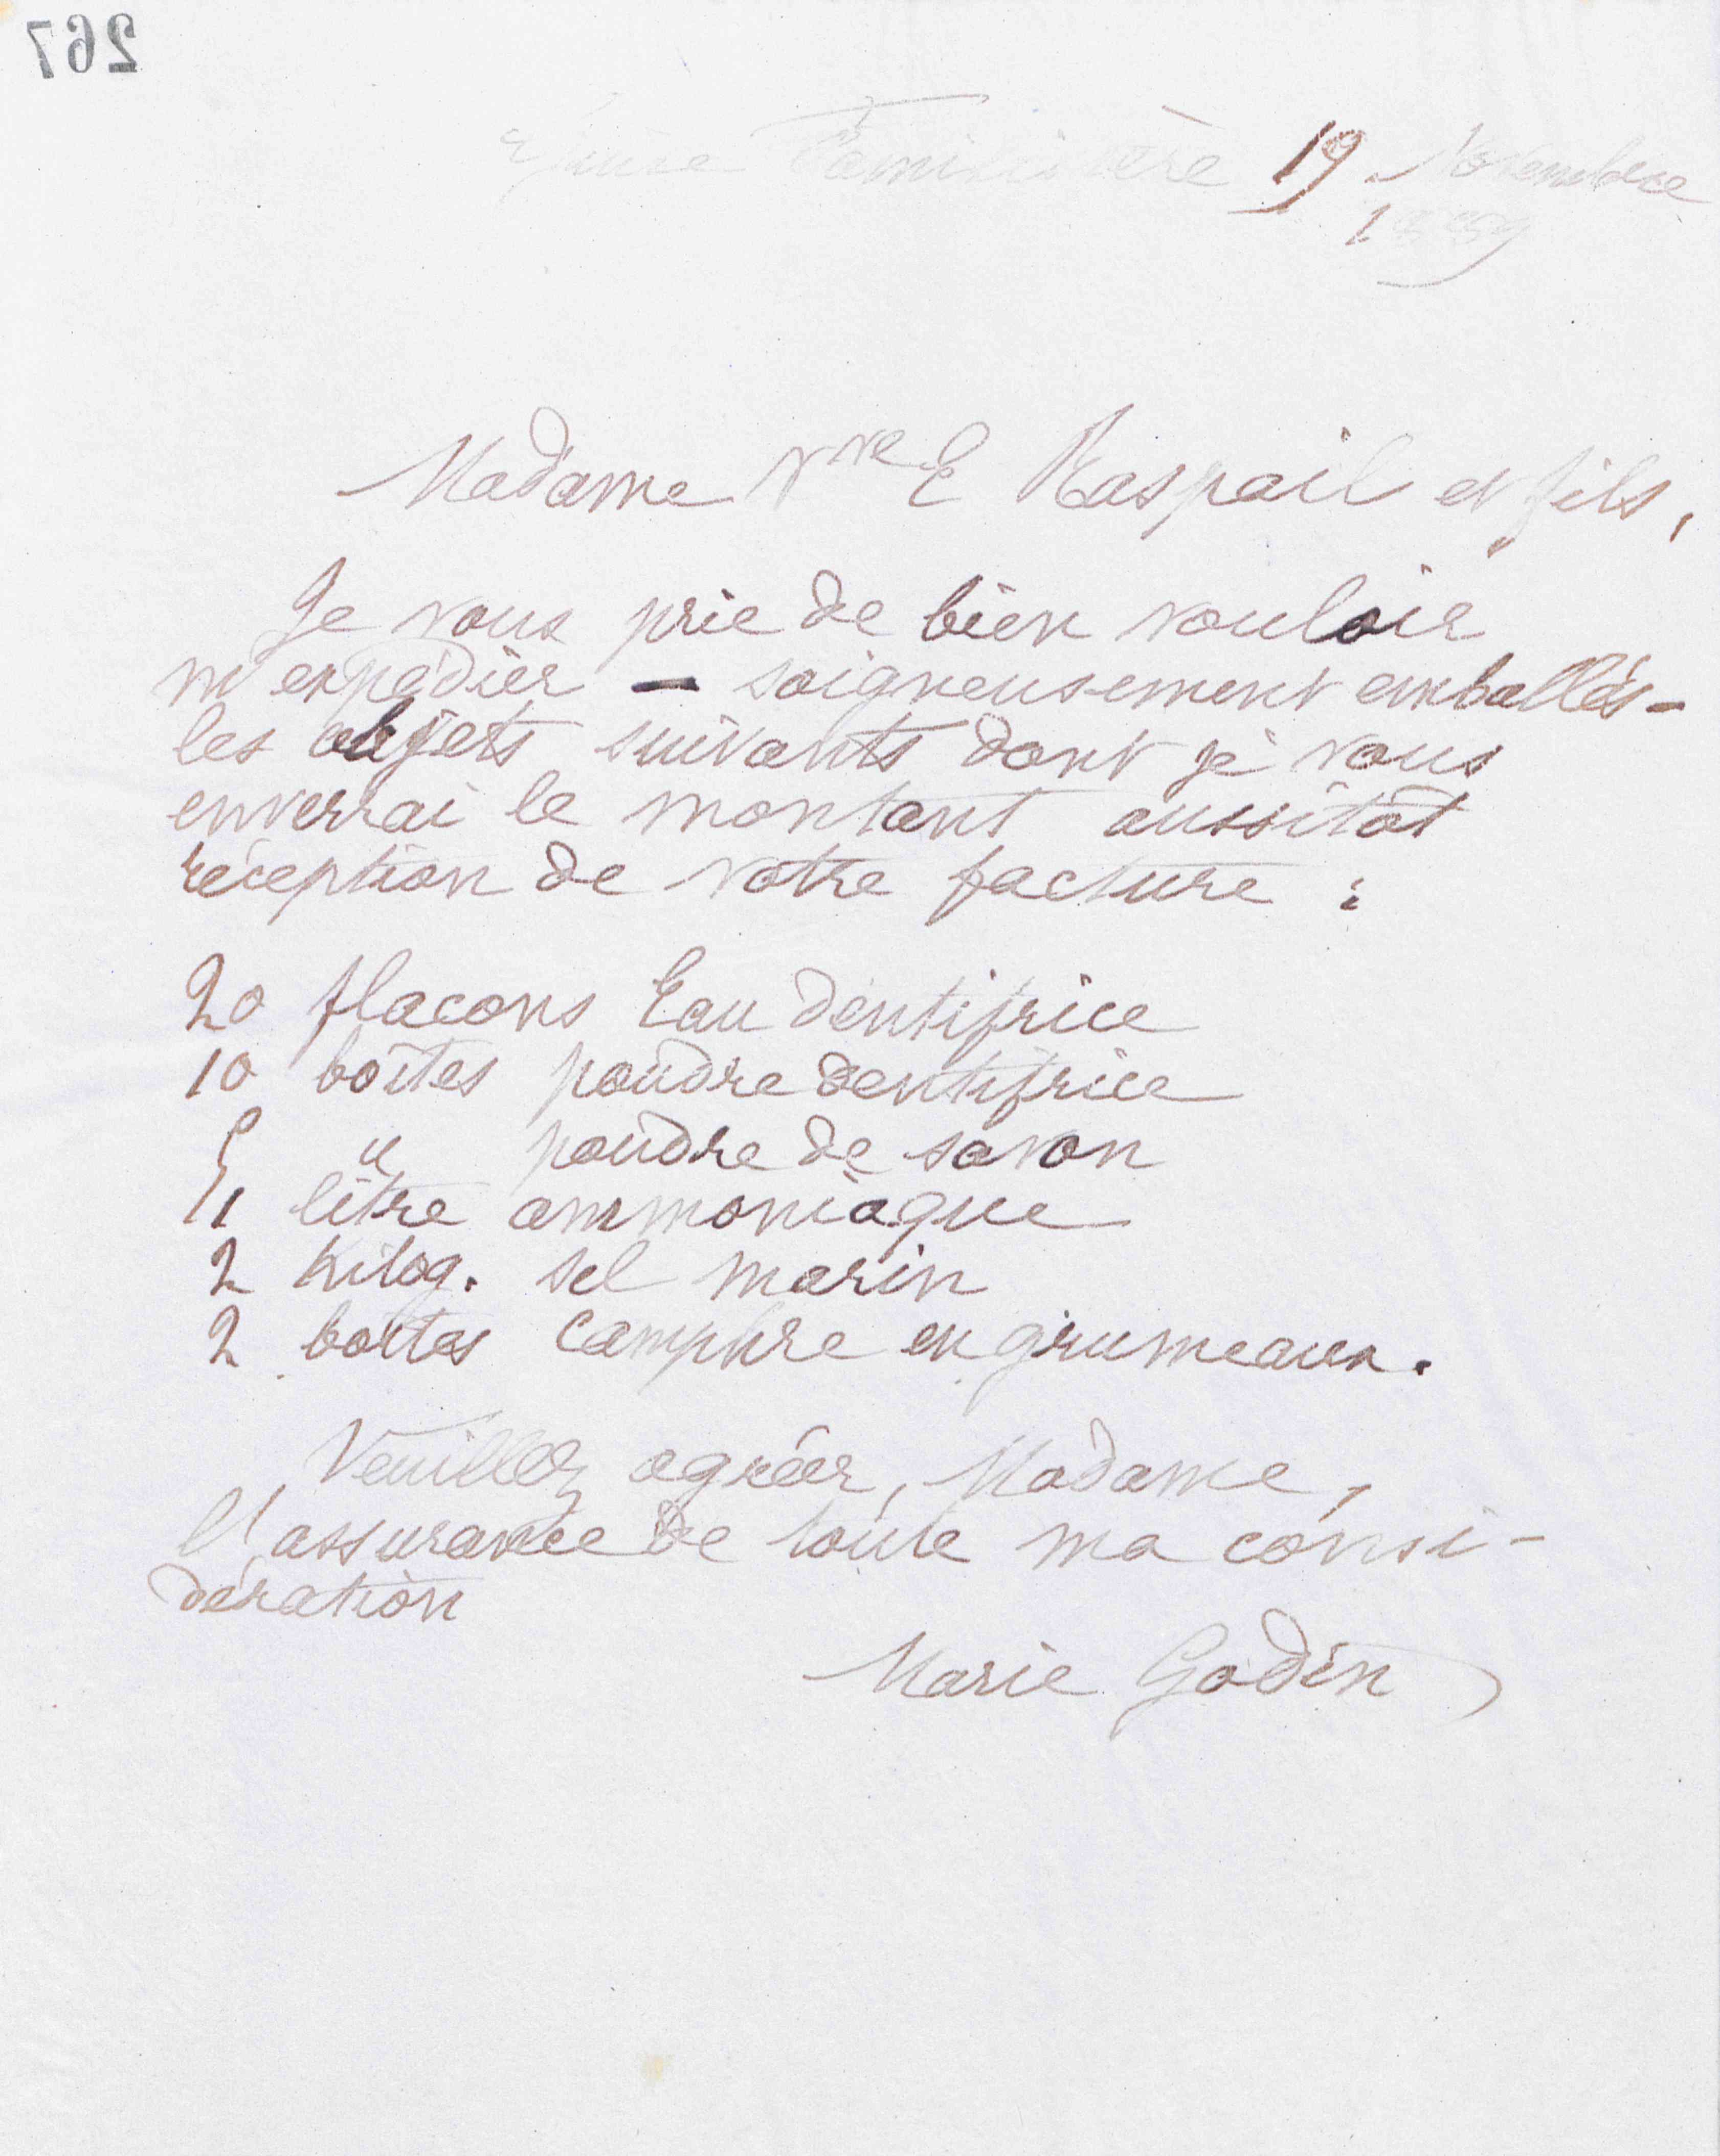 267
Guise Familistère 19 Novembre
1889
Madame Vve E Raspail et fils,
Je vous prie de bien vouloir
m'expédier — soigneusement emballés —
les objets suivants dont je vous
enverrai le montant aussitôt
réception de votre facture :
20 flacons Eau dentifrice
10 boîtes poudre dentifrice
5 " poudre de savon
1 litre ammoniaque
2 Kilog. sel marin
2 boîtes camphre en grumeaux.
Veuillez agréer, Madame,
l'assurance de toute ma consi-
dération
Marie Godin